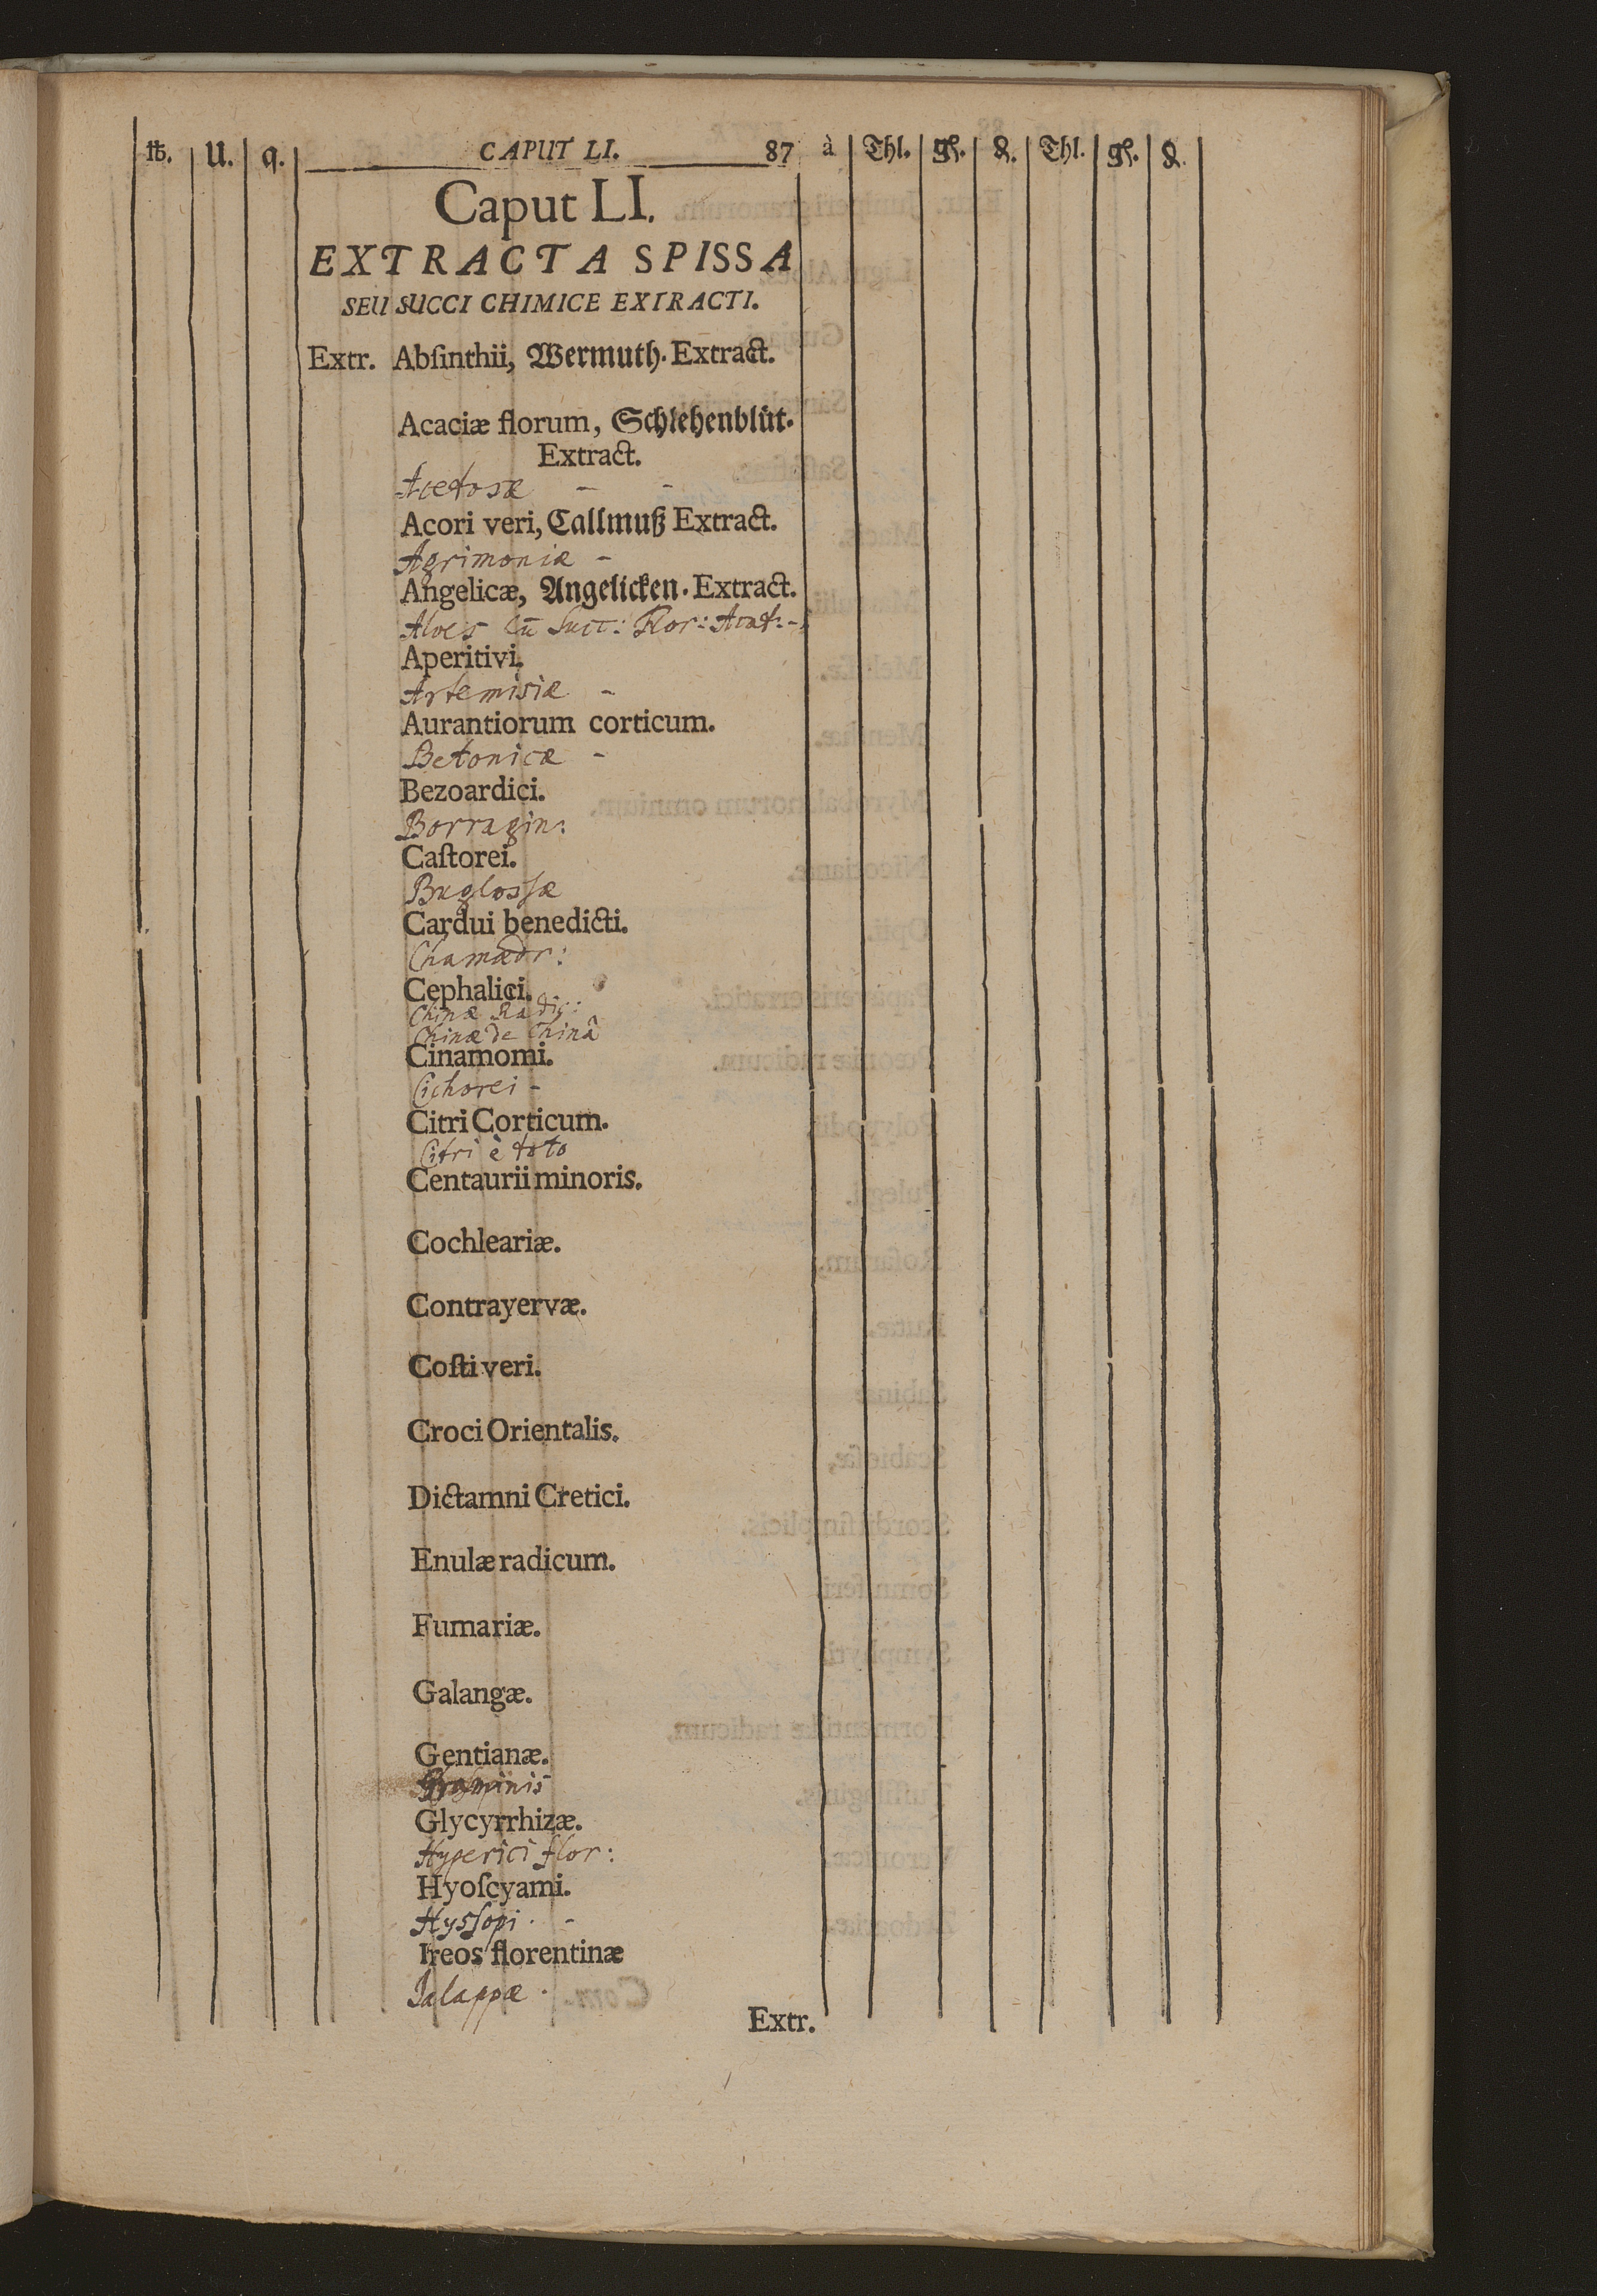 ℔. U. q. CAPUT LI. 87 à Thl. gl. ₰. Thl. gl. ₰.
Caput LI.
EXTRACTA SPISSA
SEU SUCCI CHIMICE EXTRACTI.
Extr. Abſinthii, Wermuth-Extract.
Acaciæ florum, Schlehenblüt-
Extract.
Acetosæ - -
Acori veri, Callmuß Extract.
Agrimoniæ -
Angelicæ, Angelicken-Extract.
Aloes cū Succ: Flor: Acat: -
Aperitivi.
Artemisiæ -
Aurantiorum corticum.
Betonicæ -
Bezoardici.
Borragin:
Caſtorei.
Buglossæ
Cardui benedicti.
Chamædr:
Cephalici.
Chinæ Radic:
Chinæ de Chinâ
Cinamomi.
Cichorei -
Citri Corticum.
Citri è toto
Centaurii minoris.
Cochleariæ.
Contrayervæ.
Coſti veri.
Croci Orientalis.
Dictamni Cretici.
Enulæ radicum.
Fumariæ.
Galangæ.
Gentianæ.
Graminis
Glycyrrhizæ.
Hyperici flor:
Hyoſcyami.
Hyssopi. -
Ireos florentinæ
Jalappæ.
Extr.